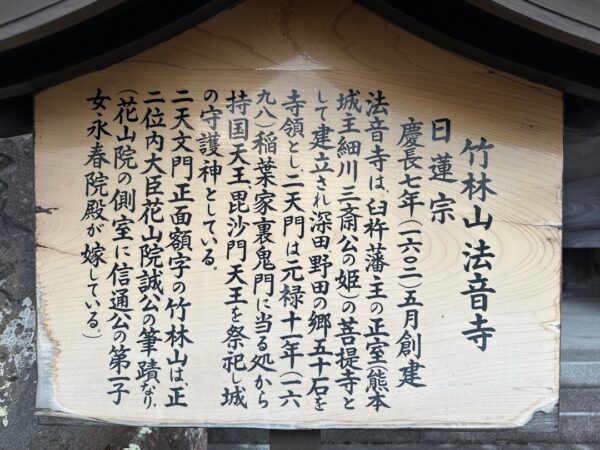 竹林山法音寺
日蓮宗
慶長七年(一六〇二)五月創建
法音寺は、臼杵藩主の正室(熊本
城主細川三斎公の姫)の菩提寺と
して建立され深田野田の郷五十石を
寺領とし、二天門は元禄十一年(一六
九八)稲葉家裏鬼門に当る処から
持国天王、毘沙門天王を祭祀し城
の守護神としている。
二天文門正面額字の竹林山は、正
二位内大臣花山院誠公の筆蹟なり
(花山院の側室に信通公の第一子
女、永春院殿が嫁している。)